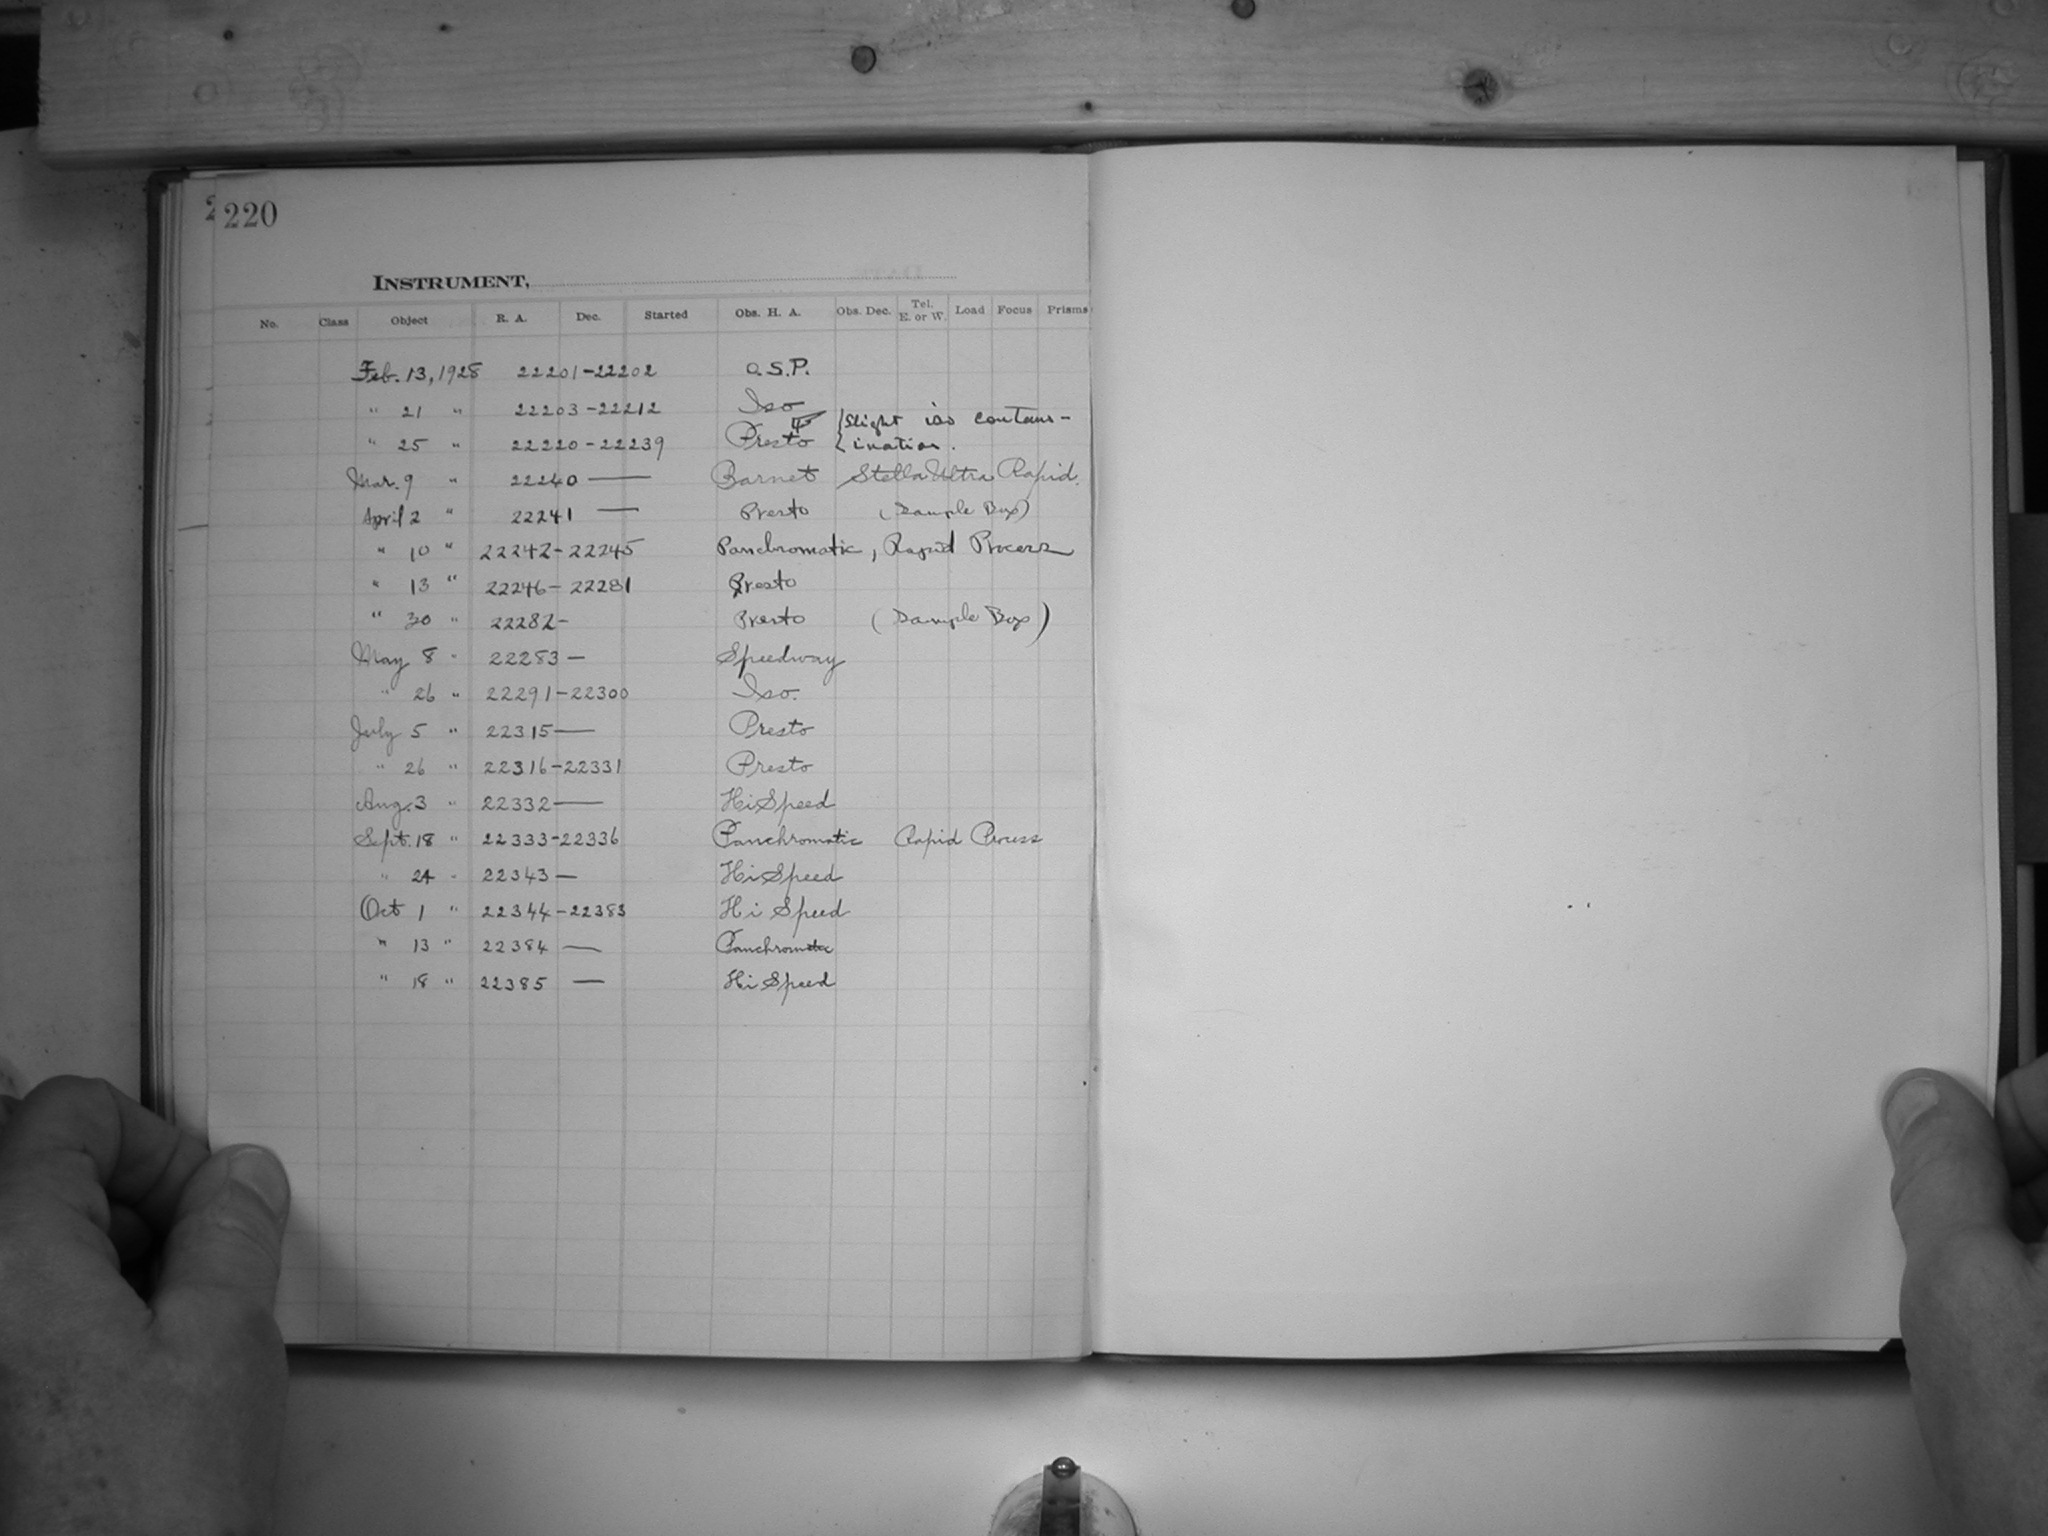 220
INSTRUMENT,
No. Class Object R. A. Dec. Started Obs. H. A. Obs. Dec. Tel. E. or W. Load Focus Prisms
Feb. 13, 1928 22201-22202 O.S.P.
" 21 " 22203-22212 Iso
" 25 " 22220-22239 Presto { Slight iso contam-
ination.
Mar. 9 " 22240 — Barnet Stella Ultra Rapid.
April 2 " 22241 — Presto (Sample Box)
" 10 " 22242-22245 Panchromatic, Rapid Process
" 13 " 22246-22281 Presto
" 30 " 22282- Presto (Sample Box)
May 8 " 22283 — Speedway
" 26 " 22291-22300 Iso.
July 5 " 22315 — Presto
" 26 " 22316-22331 Presto
Aug. 3 " 22332 — Hi Speed
Sept. 18 " 22333-22336 Panchromatic Rapid Process
" 24 " 22343 — Hi Speed
Oct 1 " 22344-22383 Hi Speed
" 13 " 22384 — Panchromatic
" 18 " 22385 — Hi Speed